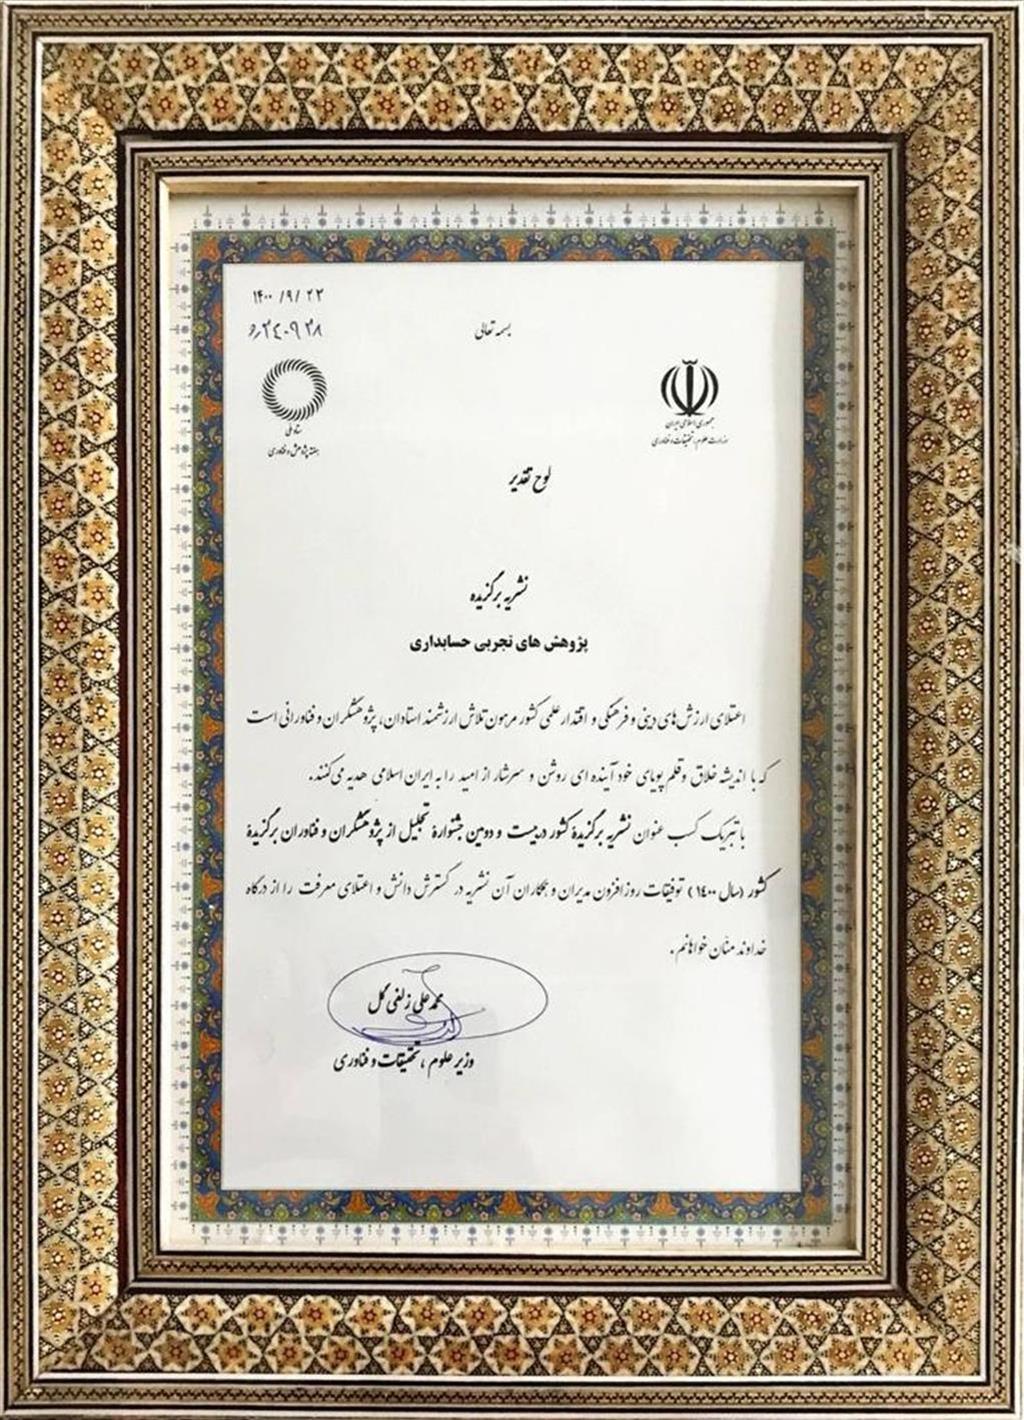 ۱۴۰۰/۹/۲۲
۲۴۰۹۲۸/و
بسمه تعالی
جمهوری اسلامی ایران
وزارت علوم، تحقیقات و فناوری
ستاد ملی
هفته پژوهش و فناوری
لوح تقدیر
نشریه برگزیده
پژوهش های تجربی حسابداری
اعتلای ارزش‌های دینی و فرهنگی و اقتدار علمی کشور مرهون تلاش ارزشمند استادان، پژوهشگران و فناورانی است
که با اندیشه خلاق و قلم پویای خود آینده ای روشن و سرشار از امید را به ایران اسلامی هدیه می‌کنند.
با تبریک کسب عنوان نشریه برگزیدهٔ کشور در بیست و دومین جشنوارهٔ تجلیل از پژوهشگران و فناوران برگزیدهٔ
کشور (سال ۱۴۰۰) توفیقات روزافزون مدیران و همکاران آن نشریه در گسترش دانش و اعتلای معرفت را از درگاه
خداوند منّان خواهانم.
محمدعلی زلفی گل
وزیر علوم، تحقیقات و فناوری